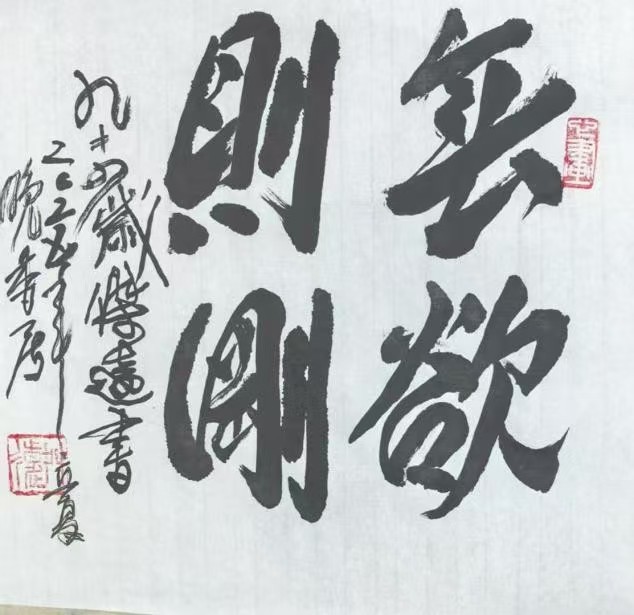 無欲
則剛
九十歲遠書
二〇二五年立夏
晚香居